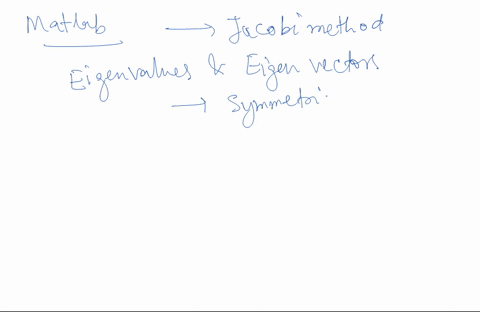 Matlab → Jacobi method
Eigenvalues & Eigen vectors
→ Symmetri